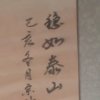 穩如泰山
乙亥冬月